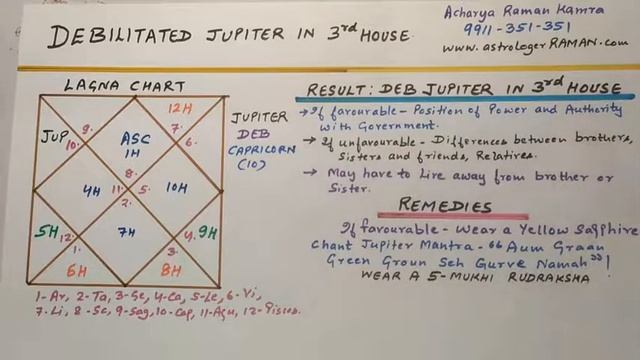 DEBILITATED JUPITER IN 3rd HOUSE
Acharya Raman Kamra
9911-351-351
www.astrologerRAMAN.com
LAGNA CHART
12H
JUP
9.
10.
ASC
1H
7.
6.
8.
4H
11.
5.
10H
2.
5H
12.
1.
7H
4.
3.
9H
6H
8H
JUPITER
DEB
CAPRICORN
(10)
1-Ar, 2-Ta, 3-Ge, 4-Ca, 5-Le, 6-Vi,
7-Li, 8-Sc, 9-Sag, 10-Cap, 11-Aqu, 12-Pisces.
RESULT: DEB JUPITER IN 3rd HOUSE
→ If favourable - Position of Power and Authority
with Government.
→ If unfavourable - Differences between brothers,
Sisters and friends, Relatives.
→ May have to Live away from brother or
Sister.
REMEDIES
If favourable - Wear a Yellow Sapphire
Chant Jupiter Mantra - "Aum Graan
Green Groun Seh Gurve Namah"!
WEAR A 5-MUKHI RUDRAKSHA